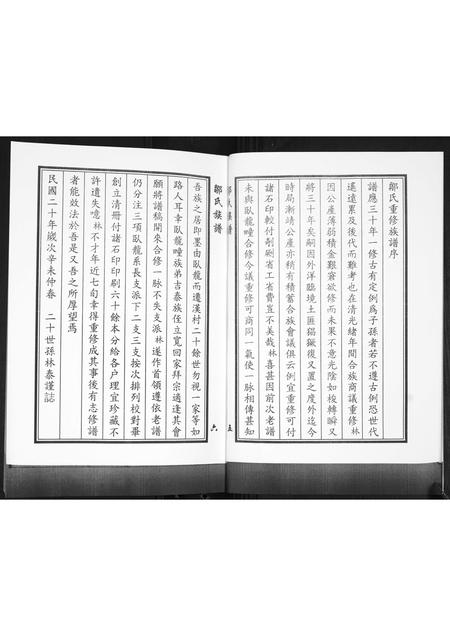 鄒氏重修族譜序
譜應三十年一修古有定例為子孫者若不遵古例恐世代
遙遠累及後代而難考也在清光緒年間合族商議重修林
因公產薄弱積金艱窘欲修而未果不意光陰如梭轉瞬又
將三十年矣嗣因外洋臨境土匪猖獗復又置之度外迄今
時局漸靖公產亦稍有積蓄合族會議俱云例宜重修可付
諸石印較付剞劂省工省費豈不美哉林喜甚因前次老譜
未與臥龍㽥合修今議重修可商同一氣使一脈相傳甚知
五
鄒氏族譜
鄒氏族譜
吾族之居即墨由臥龍而遷漢村二十餘世勿視一家等如
路人耳幸臥龍㽥族弟吉泰族侄立寬回家拜宗適逢其會
願將譜稿開來合修一脈不失支派林遂作首領遵依老譜
仍分注三項臥龍系長支派下二支三支按次排列校對畢
創立清冊付諸石印印刷六十餘本分給各户理宜珍藏不
許遺失噫林不才年近七旬幸得重修成其事後有志修譜
者能效法於吾是又吾之所厚望焉
民國二十年歲次辛未仲春　二十世孫林泰謹誌
六